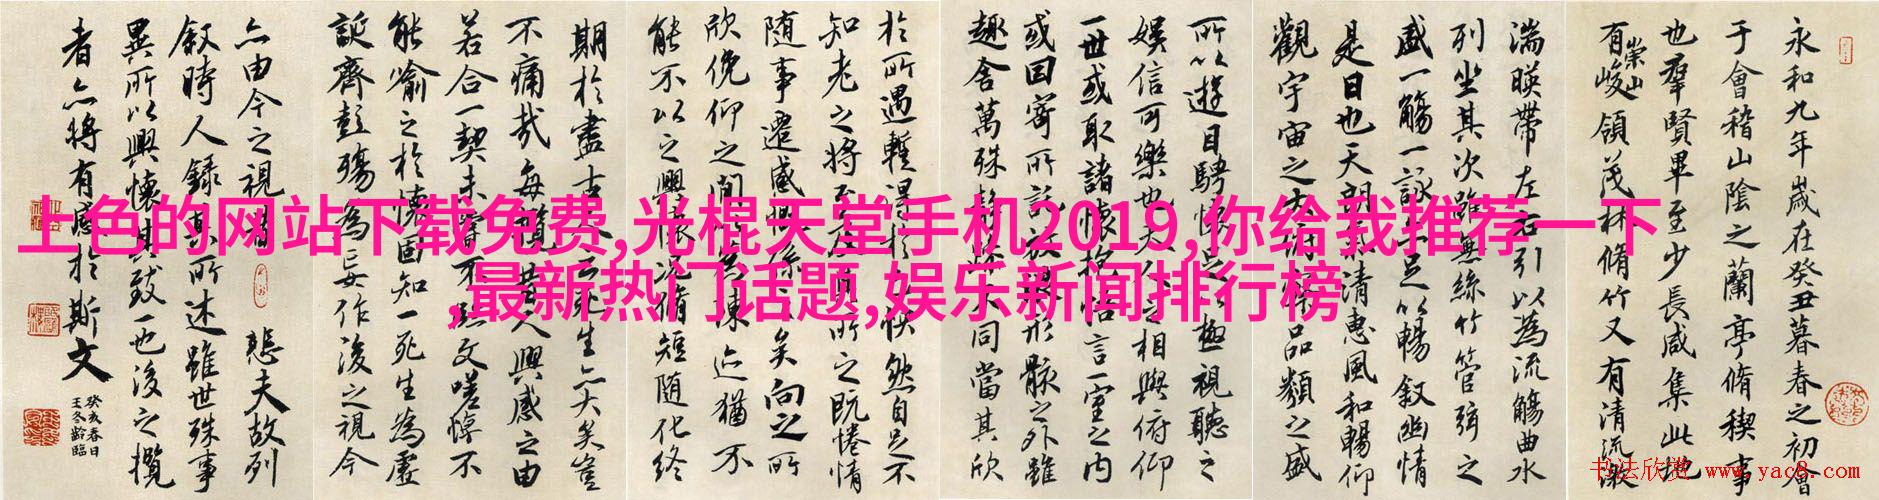 上色的网站下载免费,光棍天堂手机2019,你给我推荐一下
,最新热门话题,娱乐新闻排行榜
永和九年歲在癸丑暮春之初會
于會稽山陰之蘭亭脩禊事
也羣賢畢至少長咸集此地
有崇山峻領茂林脩竹又有清流激
湍暎帶左右引以為流觴曲水
列坐其次雖無絲竹管弦之
盛一觴一詠亦足以暢敘幽情
是日也天朗氣清惠風和暢仰
觀宇宙之大俯察品類之盛
所以遊目騁懷足以極視聽之
娛信可樂也夫人之相與俯仰
一世或取諸懷抱悟言一室之內
或因寄所託放浪形骸之外雖
趣舍萬殊靜躁不同當其欣
於所遇暫得於己快然自足不
知老之將至及其所之既惓情
随事遷感慨係之矣向之所
欣俛仰之間以為陳迹猶不
能不以之興懷況脩短随化終
期於盡古人云死生亦大矣豈
不痛哉每攬昔人興感之由
若合一契未嘗不臨文嗟悼不
能喻之於懷固知一死生為虛
誕齊彭殤為妄作後之視今
亦由今之視昔悲夫故列
敘時人錄其所述雖世殊事
異所以興懷其致一也後之攬
者亦將有感於斯文
癸亥春日
王冬齡臨
书法欣赏 www.yac8.com